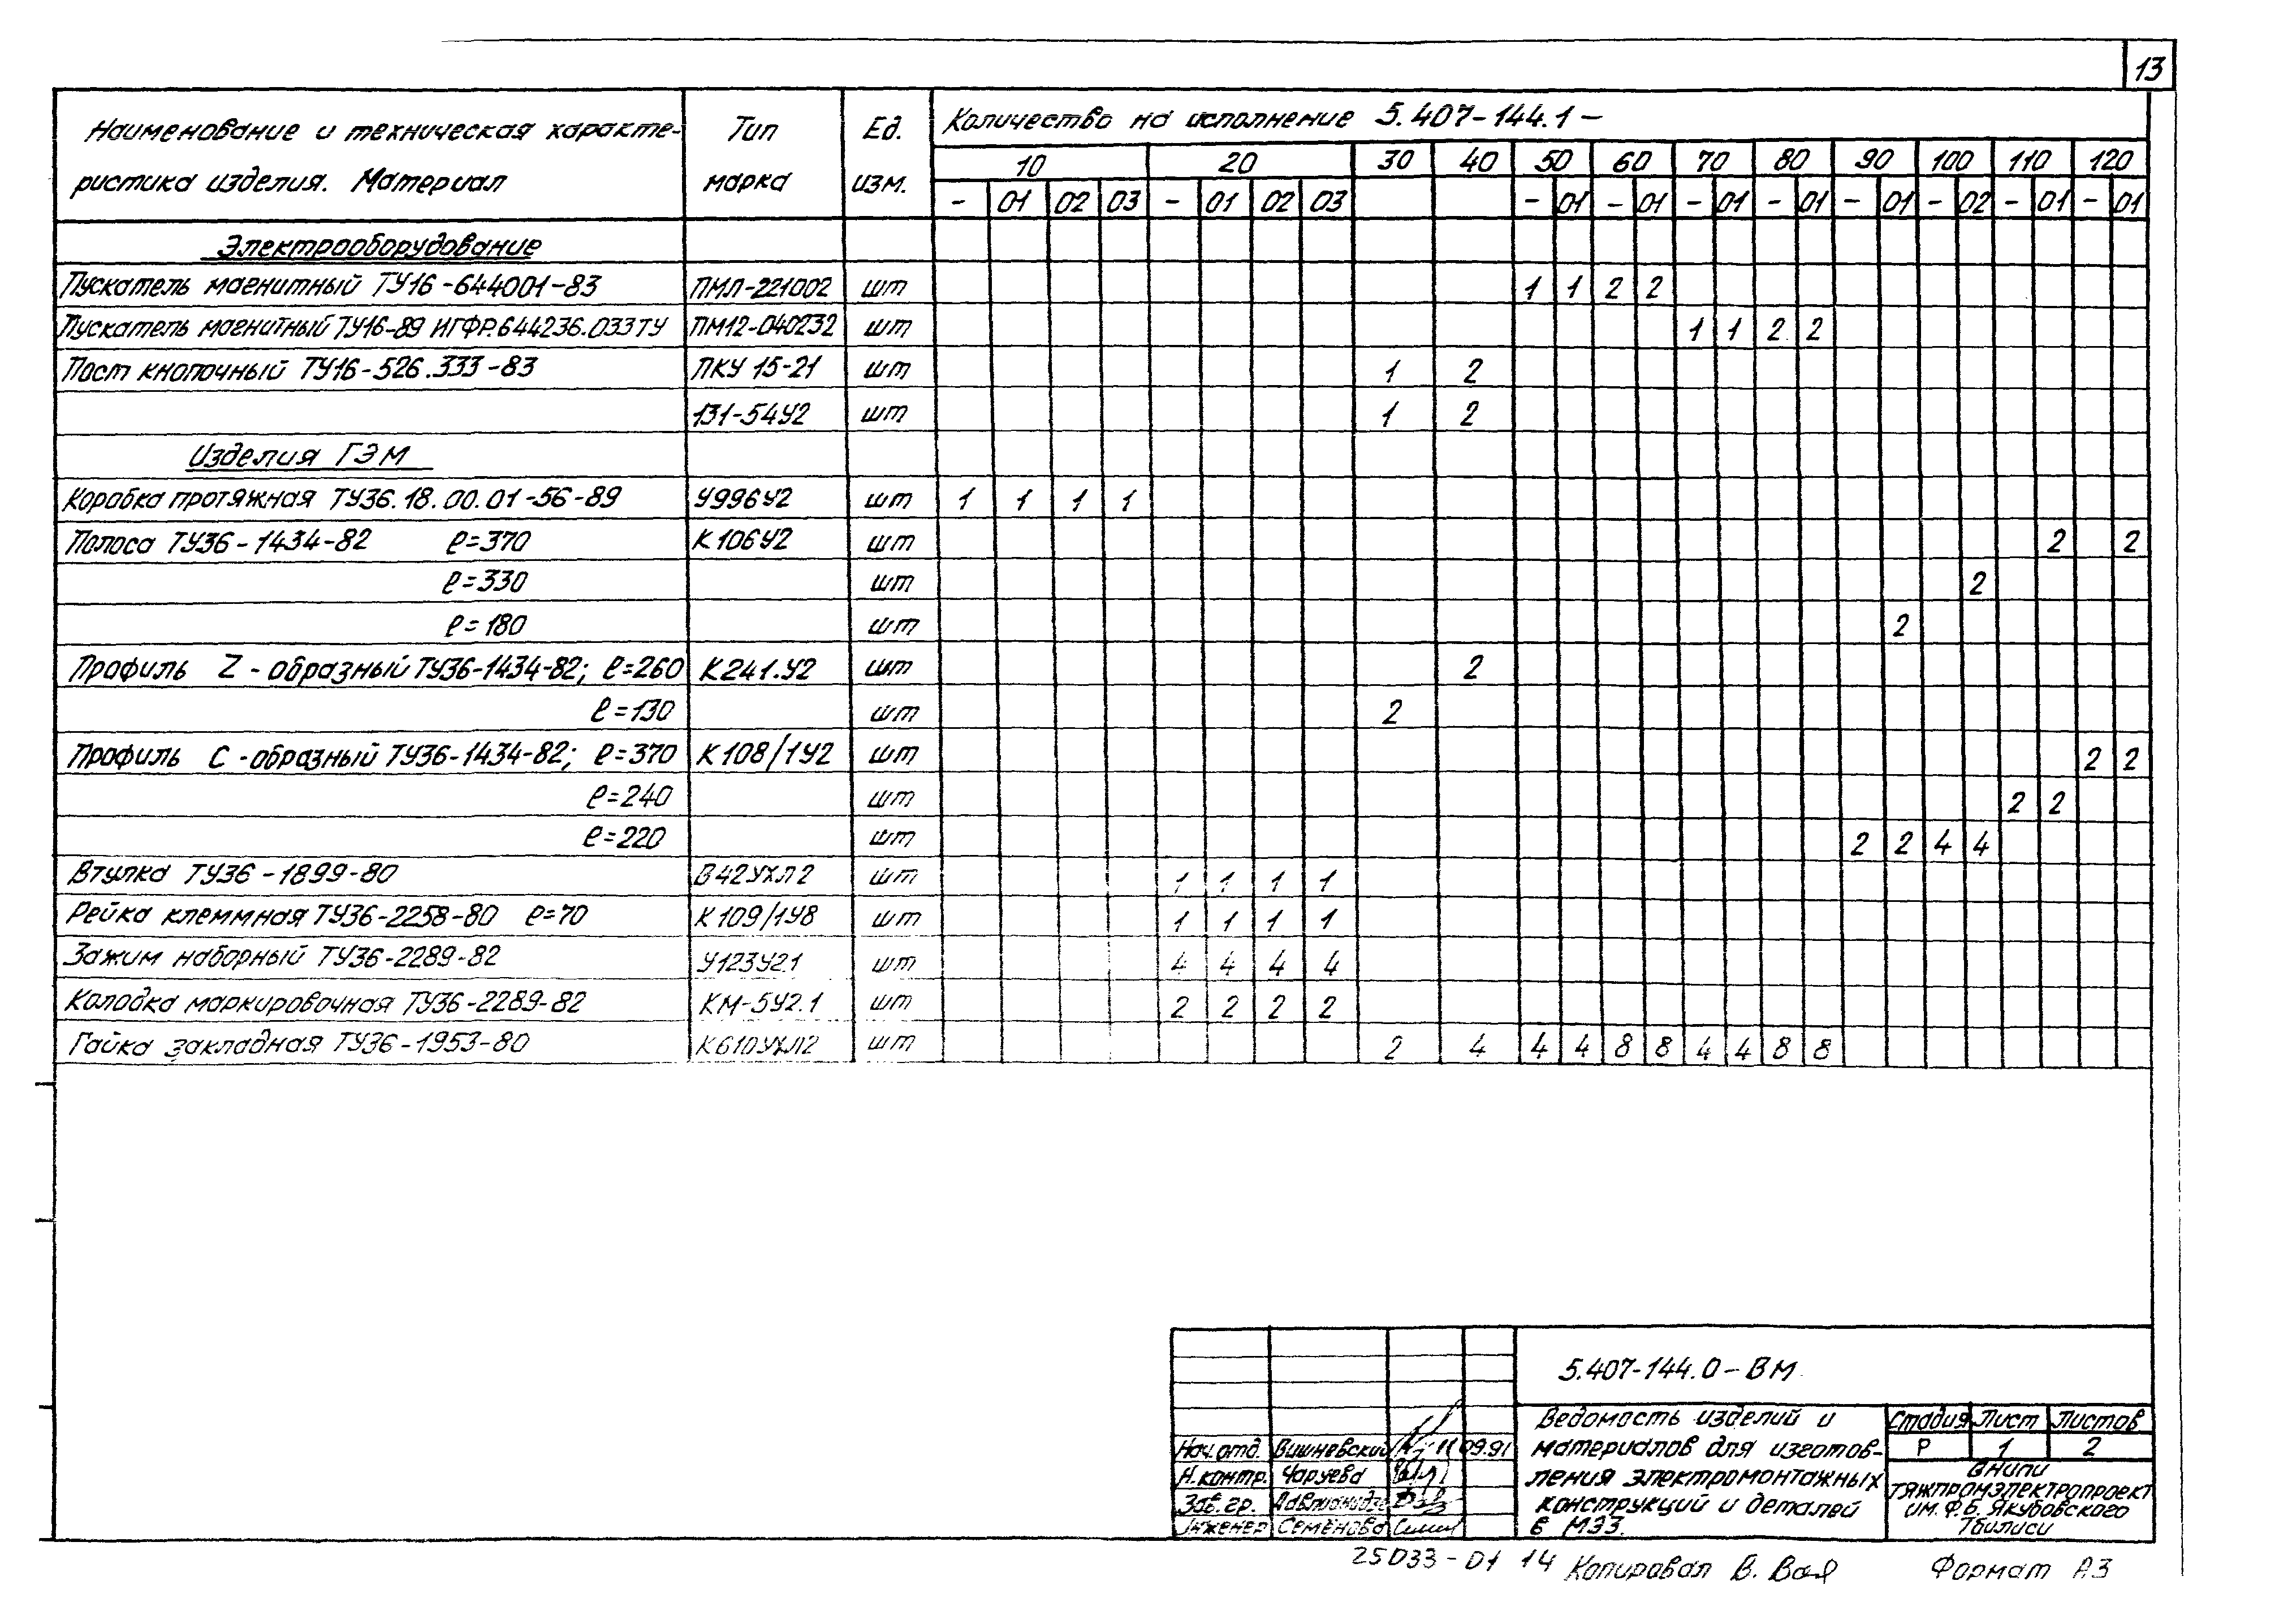 13
Наименование и техническая характе- Тип Ед. Количество на исполнение 5.407-144.1-
ристика изделия. Материал марка изм. 10 20 30 40 50 60 70 80 90 100 110 120
- 01 02 03 - 01 02 03 - 01 - 01 - 01 - 01 - 01 - 02 - 01 - 01
Электрооборудование
Пускатель магнитный ТУ16-644001-83 ПМЛ-221002 шт 1 1 2 2
Пускатель магнитный ТУ16-89 ИГФР.644236.033ТУ ПМ12-040232 шт 1 1 2 2
Пост кнопочный ТУ16-526.333-83 ПКУ 15-21 шт 1 2
131-54У2 шт 1 2
Изделия ГЭМ
Коробка протяжная ТУ36.18.00.01-56-89 У996У2 шт 1 1 1 1
Полоса ТУ36-1434-82 ℓ=370 К106У2 шт 2 2
ℓ=330 шт 2
ℓ=180 шт 2
Профиль Z-образный ТУ36-1434-82; ℓ=260 К241.У2 шт 2
ℓ=130 шт 2
Профиль С-образный ТУ36-1434-82; ℓ=370 К108/1У2 шт 2 2
ℓ=240 шт 2 2
ℓ=220 шт 2 2 4 4
Втулка ТУ36-1899-80 В42УХЛ2 шт 1 1 1 1
Рейка клеммная ТУ36-2258-80 ℓ=70 К109/1У8 шт 1 1 1 1
Зажим наборный ТУ36-2289-82 У123У2.1 шт 4 4 4 4
Колодка маркировочная ТУ36-2289-82 КМ-5У2.1 шт 2 2 2 2
Гайка закладная ТУ36-1953-80 К610УХЛ2 шт 2 4 4 4 8 8 4 4 8 8
5.407-144.0-ВМ
Ведомость изделий и
материалов для изготов-
ления электромонтажных
конструкций и деталей
в МЭЗ.
Стадия Лист Листов
Р 1 2
ВНИПИ
ТЯЖПРОМЭЛЕКТРОПРОЕКТ
им. Ф.Б. Якубовского
Тбилиси
Нач.отд. Вишневский 09.91
Н.контр. Чаруева
Зав.гр.
Инженер Семёнова
25033-01 14 Копировал В. Формат А3